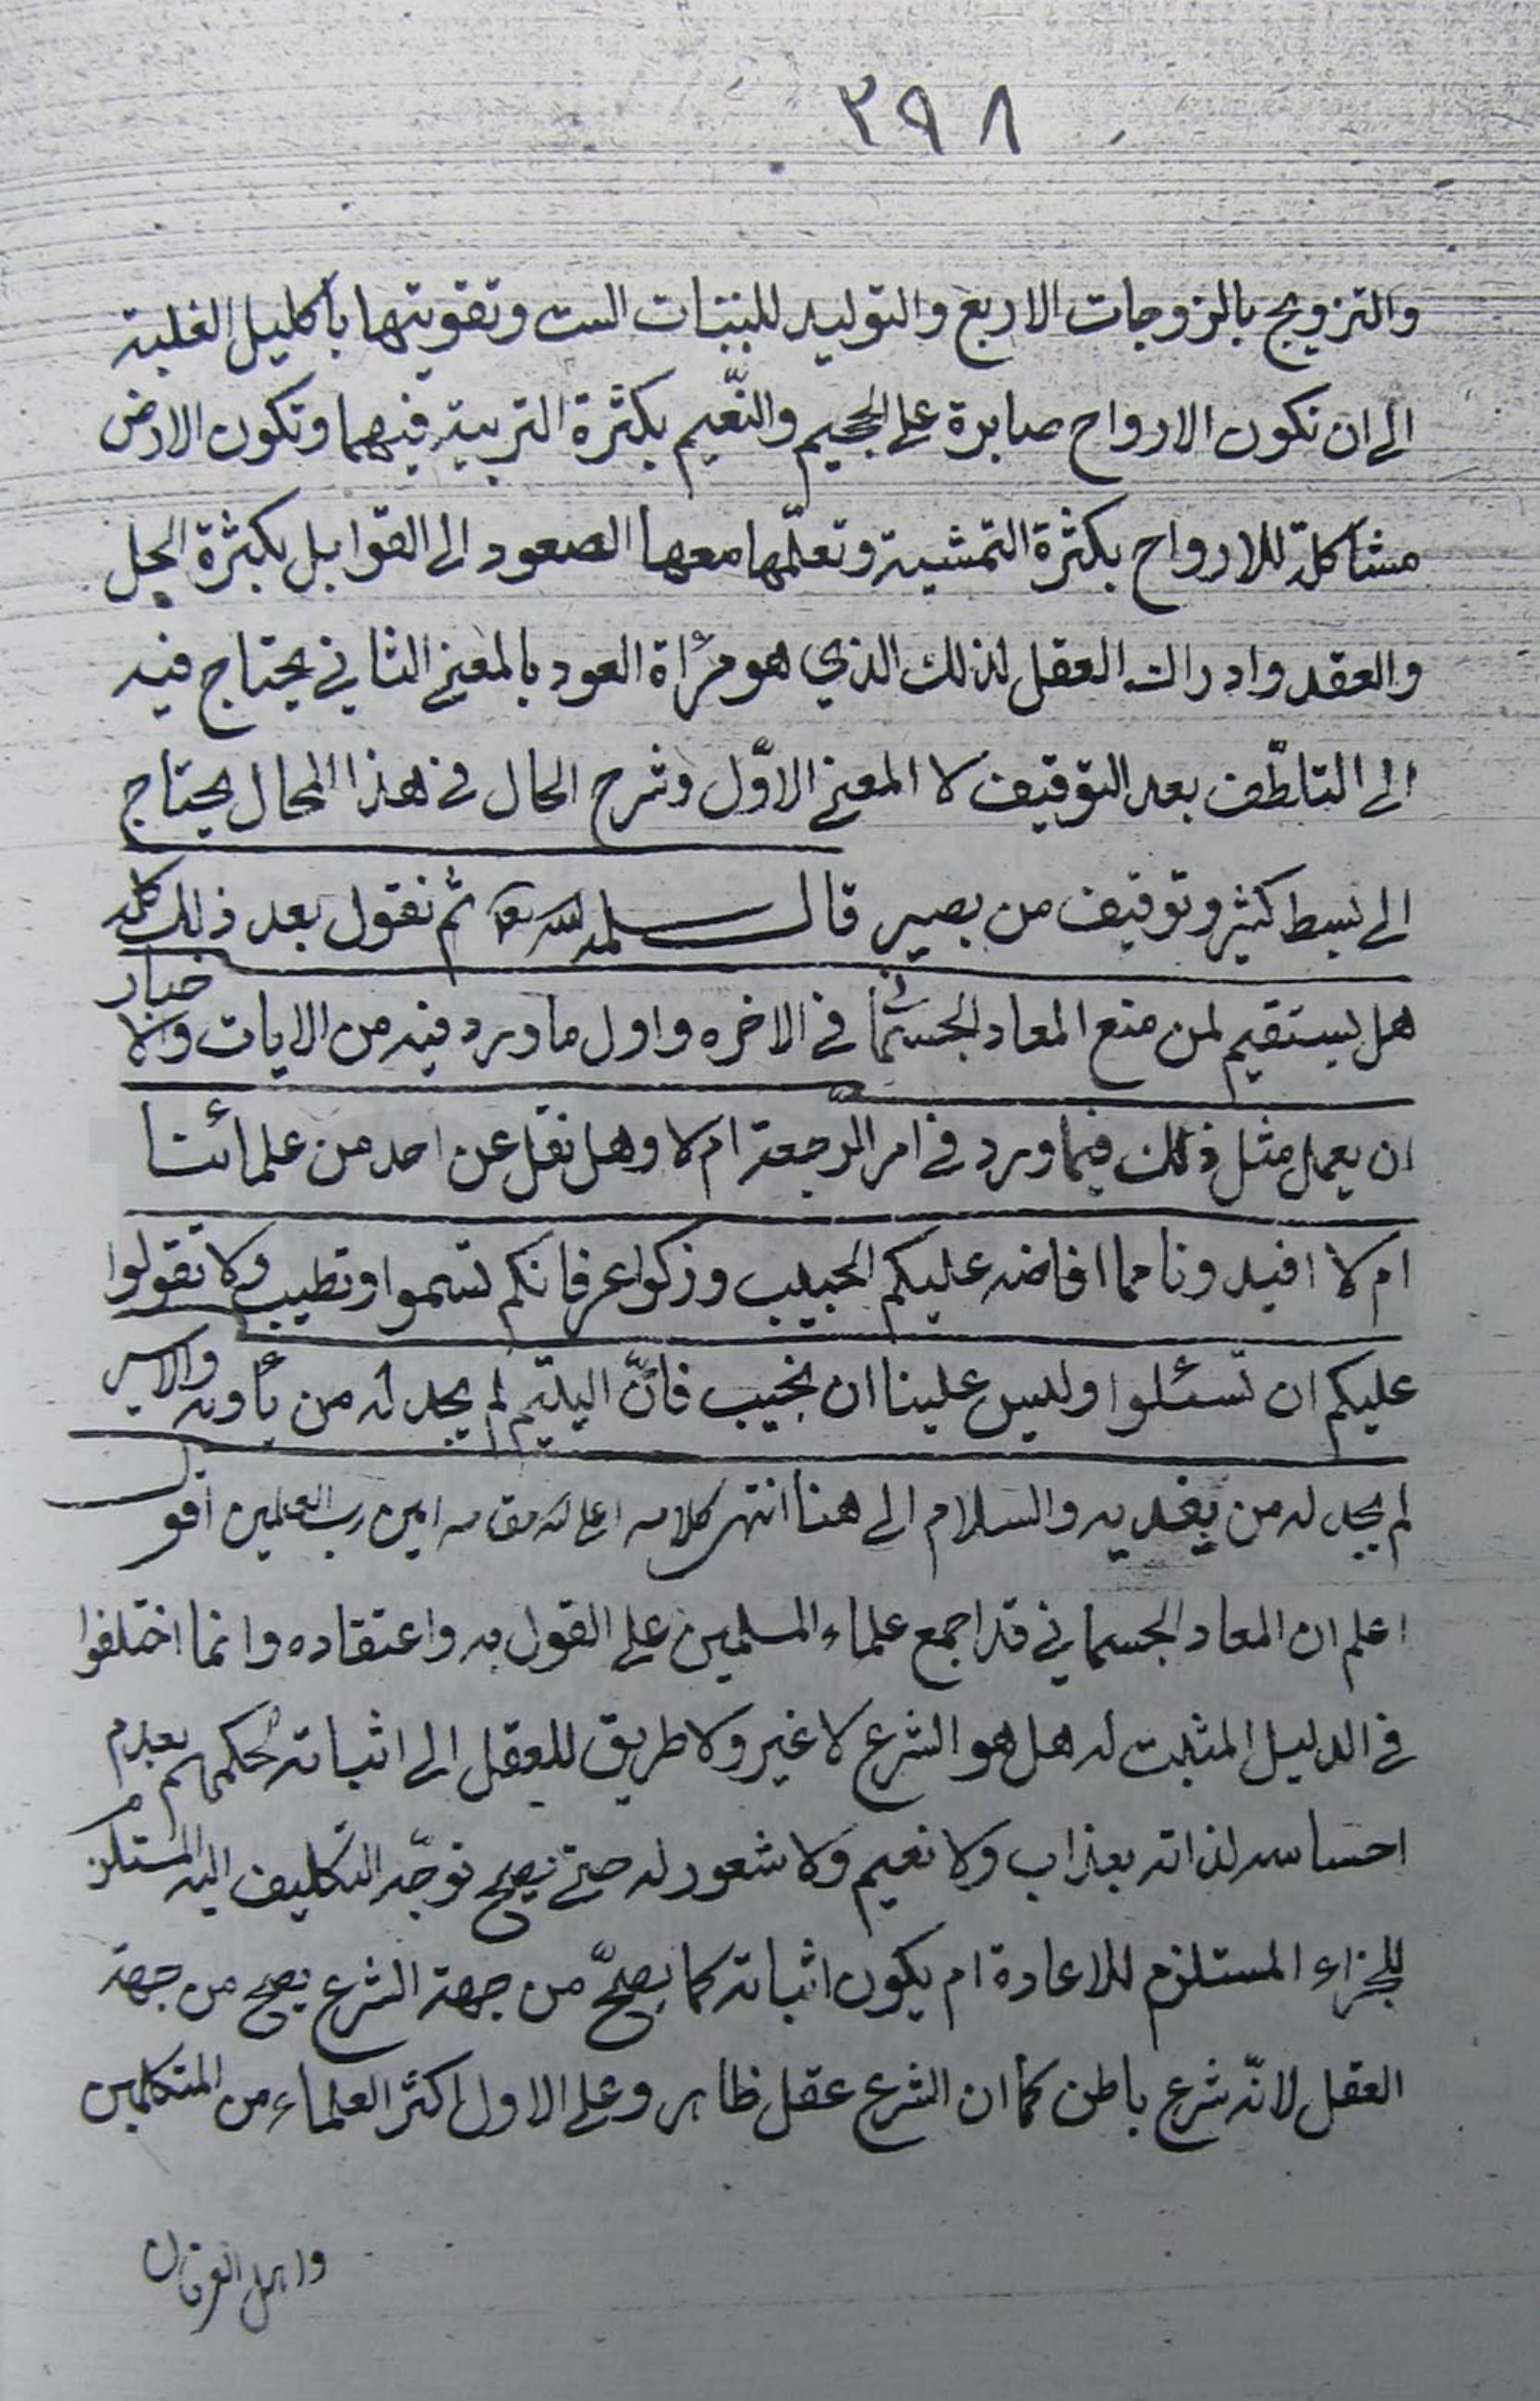 ٣٩٨
والتزويج بالزوجات الاربع والتوليد للبنات الست وتقويتها باكليل الغلبة
الى ان تكون الارواح صابرة على الجحيم والنّعيم بكثرة التربية فيهما وتكون الارض
مشاكلة للارواح بكثرة التمشية وتعلّمها معها الصعود الى القوابل بكثرة الحل
والعقد وادراك العقل لذلك الذي هو مرءاة العود بالمعنى الثاني يحتاج فيه
الى التلطّف بعد التوقيف لا المعنى الاوّل وشرح الحال في هذا المحال يحتاج
الى بسط كثير وتوقيف من بصير قال سلمه الله تعالى ثم نقول بعد ذلك كله
هل يستقيم لمن منع المعاد الجسماني في الاخره واول ما ورد فيه من الايات والاخبار
ان يعمل مثل ذلك فيما ورد في امر الرجعة ام لا وهل نقل عن احد من علمائنا
ام لا افيدونا مما افاضه عليكم الحبيب وزكوا عرفانكم تسموا وتطيب ولا تقولوا
عليكم ان تسئلوا وليس علينا ان نجيب فانّ اليتيم لم يجد له من يأويه والاسير
لم يجد له من يفديه والسلام الى هنا انتهى كلامه اعلى الله مقامه امين رب العلمين اقول
اعلم ان المعاد الجسماني قد اجمع علماء المسلمين على القول به واعتقاده وانما اختلفوا
في الدليل المثبت له هل هو الشرع لا غير ولا طريق للعقل الى اثباته لحكمهم بعدم
احساسه لذاته بعذاب ولا نعيم ولا شعور له حتى يصح توجّه التكليف اليه المستلزم
للجزاء المستلزم للاعادة ام يكون اثباته كما يصحّ من جهة الشرع يصح من جهة
العقل لانّه شرع باطن كما ان الشرع عقل ظاهر وعلى الاول اكثر العلماء من المتكلمين
واهل الفرقان